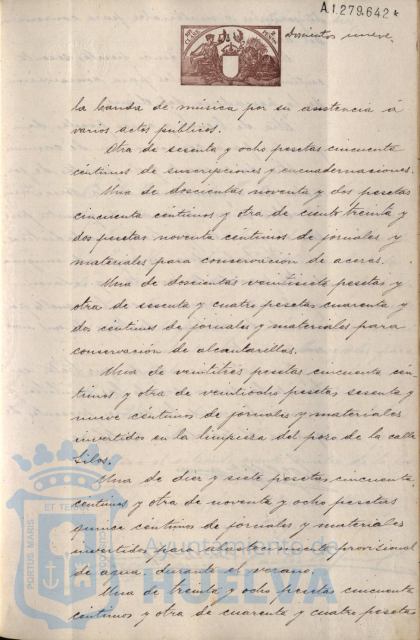 A.1.279.642*
doscientos nueve.
la banda de música por su asistencia á
varios actos públicos.
Otra de sesenta y ocho pesetas cincuenta
céntimos de suscripciones y encuadernaciones.
Una de doscientas noventa y dos pesetas
cincuenta céntimos y otra de ciento treinta y
dos pesetas noventa céntimos de jornales y
materiales para conservación de aceras.
Una de doscientas veintisiete pesetas y
otra de sesenta y cuatro pesetas cuarenta y
dos céntimos de jornales y materiales para
conservación de alcantarillas.
Una de veintitrés pesetas cincuenta cén
timos y otra de veintiocho pesetas sesenta y
nueve céntimos de jornales y materiales
invertidos en la limpieza del pozo de la calle
Silos.
Una de diez y siete pesetas cincuenta
céntimos y otra de noventa y ocho pesetas
quince céntimos de jornales y materiales
invertidos para provisional
de agua durante el verano.
Una de treinta y ocho pesetas cincuenta
céntimos y otra de cuarenta y cuatro pesetas
PORTUS MARIS
ET TERRAE
Ayuntamiento de
HUELVA